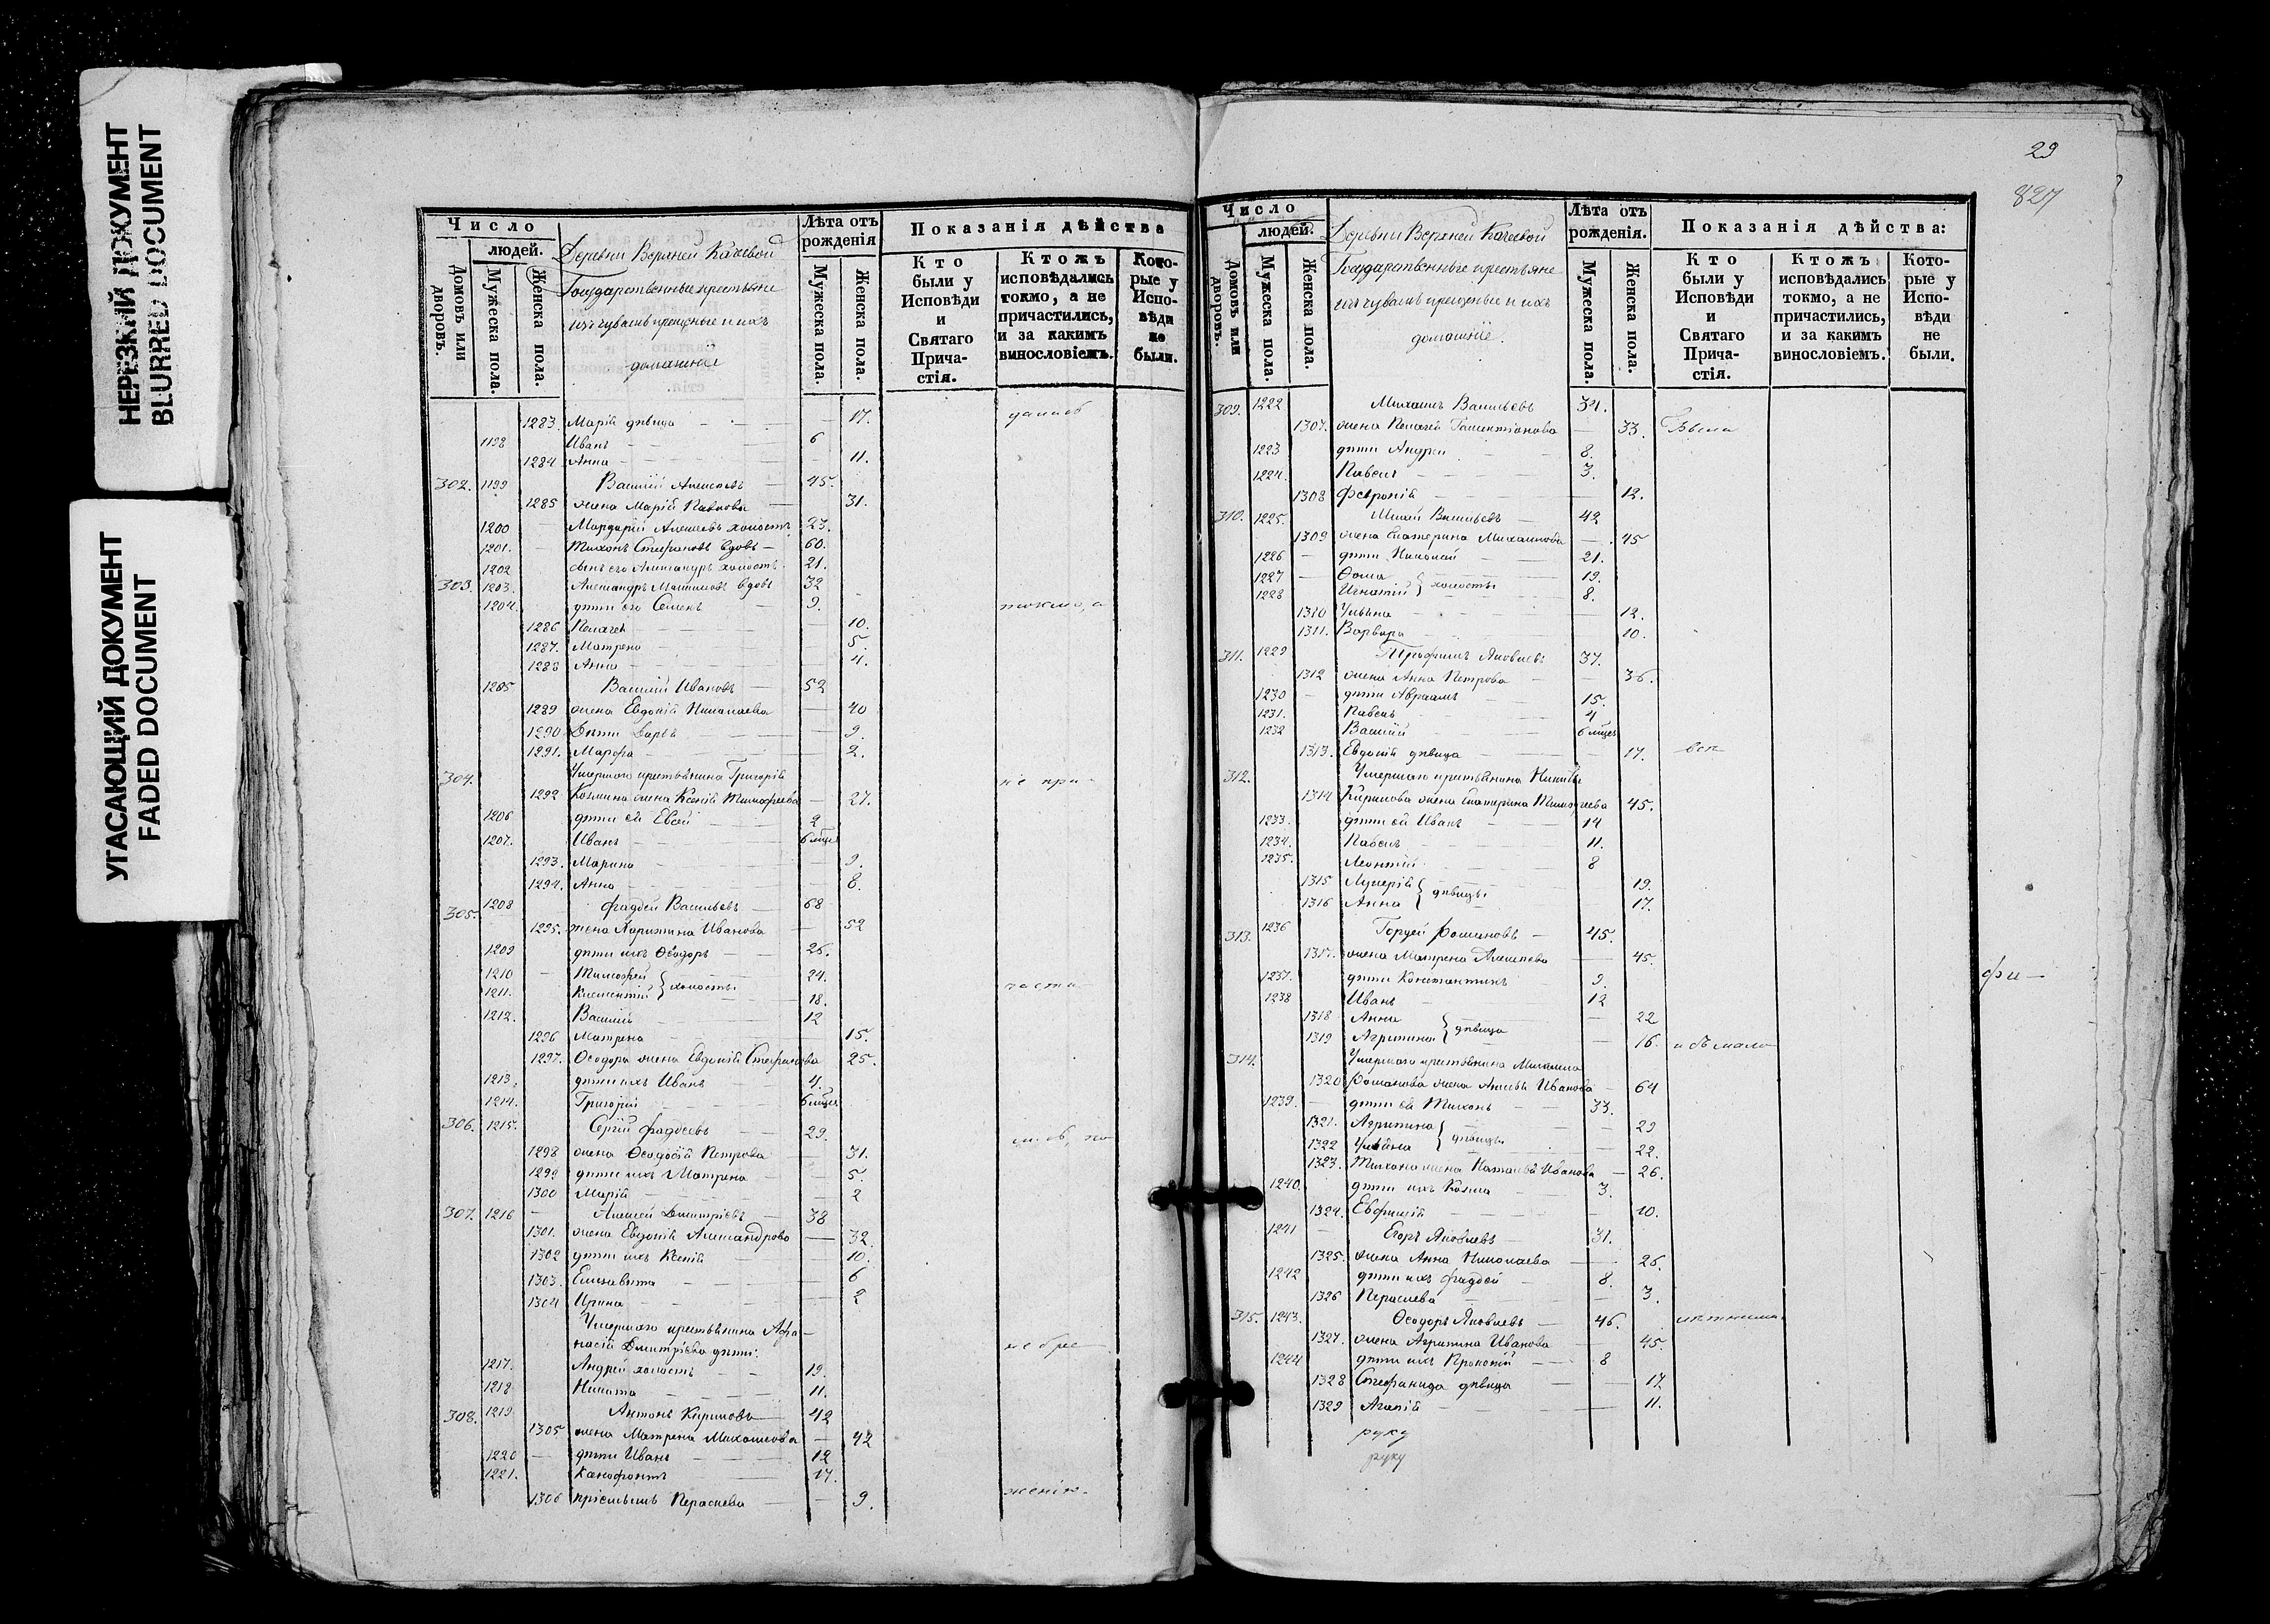 НЕРЕЗКИЙ ДОКУМЕНТ
BLURRED DOCUMENT
УГАСАЮЩИЙ ДОКУМЕНТ
FADED DOCUMENT
Число
людей.
Домовъ или дворовъ.
Мужеска пола.
Женска пола.
Деревни Верхней Качевой
Государственные крестьяне
изъ чувашъ крещеные и ихъ
домашніе
Лѣта отъ рожденія
Мужеска пола.
Женска пола.
Показанія дѣйства
Кто были у Исповѣди и Святаго Прича-стія.
Ктожъ исповѣдались токмо, а не причастились, и за какимъ винословіемъ.
Кото-рые у Испо-вѣди не были.
1283. Марія дѣвица 17.
1198 Иванъ 6
1284 Анна 11.
302. 1199 Василій Алексѣевъ 45.
1285 жена Марія Павлова 31.
1200 Мардарій Алексѣевъ холостъ 23.
1201. Тихонъ Стефановъ вдовъ 60.
1202 сынъ его Александръ холостъ 21.
303. 1203. Александръ Максимовъ вдовъ 32
1204. дѣти его Семенъ 9. токмо, а
1286 Пелагея 10.
1287. Матрена 5.
1288 Анна 4.
1205 Василій Ивановъ 52
1289 жена Евдокія Николаева 40
1290 дѣти 9.
1291. Марфа 2.
304. Умершаго крестьянина Григорія не при-
1292 Козмина жена Ксенія Тимофеева 27.
1206 дѣти ей 2
1207. Иванъ 6 мцѣв
1293. Марина 9.
1294. Анна 8.
305. 1208 Фаддей Васильевъ 68
1295. жена Харитина Иванова 52
1209 дѣти ихъ Ѳеодоръ 26.
1210 Тимофей } холосты 24.
1211. Климентій 18. части
1212. Василій 12
1296 Матрена 15.
1297. Ѳеодора жена Евдокія Стефанова 25.
1213. дѣти ихъ Иванъ 4.
1214. Григорій 6 мцѣв
306. 1215. Сергій Фаддеевъ 29.
1298 жена Ѳеодосія Петрова 31.
1299 дѣти ихъ Матрена 5.
1300 Марія 2
307. 1216 Алексей Дмитріевъ 38
1301. жена Евдокія Александрова 32.
1302 дѣти ихъ Ксенія 10.
1303. Елисавета 6
1304 Ирина 2
Умершаго крестьянина Афа-
насія Дмитріева дѣти: не бре
1217. Андрей холостъ 19.
1218 Никита 11.
308. 1219 Антонъ Кириловъ 42
1305 жена Матрена Михаилова 42
1220 дѣти Иванъ 12
1221. Ксенофонтъ 17.
1306 пріемышъ Параскева 9. женію.
29
827
Число
людей.
Домовъ или дворовъ.
Мужеска пола.
Женска пола.
Деревни Верхней Качевой
Государственные крестьяне
изъ чувашъ крещеные и ихъ
домашніе.
Лѣта отъ рожденія.
Мужеска пола.
Женска пола.
Показанія дѣйства:
Кто были у Исповѣди и Святаго Прича-стія.
Ктожъ исповѣдались токмо, а не причастились, и за какимъ винословіемъ.
Кото-рые у Испо-вѣди не были.
309. 1222 Михаилъ Васильевъ 34.
1307. жена Пелагея 33. Были
1223 дѣти Андрей 8.
1224. Павелъ 3.
1308 Февронія 12.
310. 1225. Васильевъ 42
1309 жена Екатерина Михаилова 45
1226 дѣти Николай 21.
1227 Ѳома } холосты 19.
1228 Игнатій 8.
1310 Ульяна 12.
1311. Варвара 10.
311. 1229 Трофимъ Яковлевъ 37.
1312 жена Анна Петрова 36.
1230 дѣти Авраамъ 15.
1231. Павелъ 4
1232 Василій 6 мцѣв
1313. Евдокія дѣвица 17. вси
312. Умершаго крестьянина Никиты
1314 Кирилова жена Екатерина Тимофеева 45.
1233. дѣти ей Иванъ 14
1234. Павелъ 11.
1235. Леонтій 8
1315 Лукерія } дѣвицы 19.
1316 Анна 17.
313. 1236 Гордей Романовъ 45.
1317. жена Матрена Алексѣева 45.
1237. дѣти Константинъ 9.
1238 Иванъ 12
1318 Анна } дѣвицы 22
1319 Агрипина 16.
фи-
314. Умершаго крестьянина Михаила
1320 Романова жена Иванова 64
1239. дѣти ей Тихонъ 33.
1321. Агрипина } дѣвицы 29
1322 Ульяна 22.
1323. Тихона жена Наталья Иванова 26.
1240. дѣти ихъ Козма 3.
1324. Евфимія 10.
1241 Егоръ Яковлевъ 31.
1325. жена Анна Николаева 26.
1242 дѣти ихъ Фаддей 8.
1326 Параскева 3.
315. 1243. Ѳеодоръ Яковлевъ 46.
1327. жена Агрипина Иванова 45.
1244 дѣти ихъ Прокопій 8
1328 Стефанида дѣвица 17
1329 Агапія 11.
руку
руку